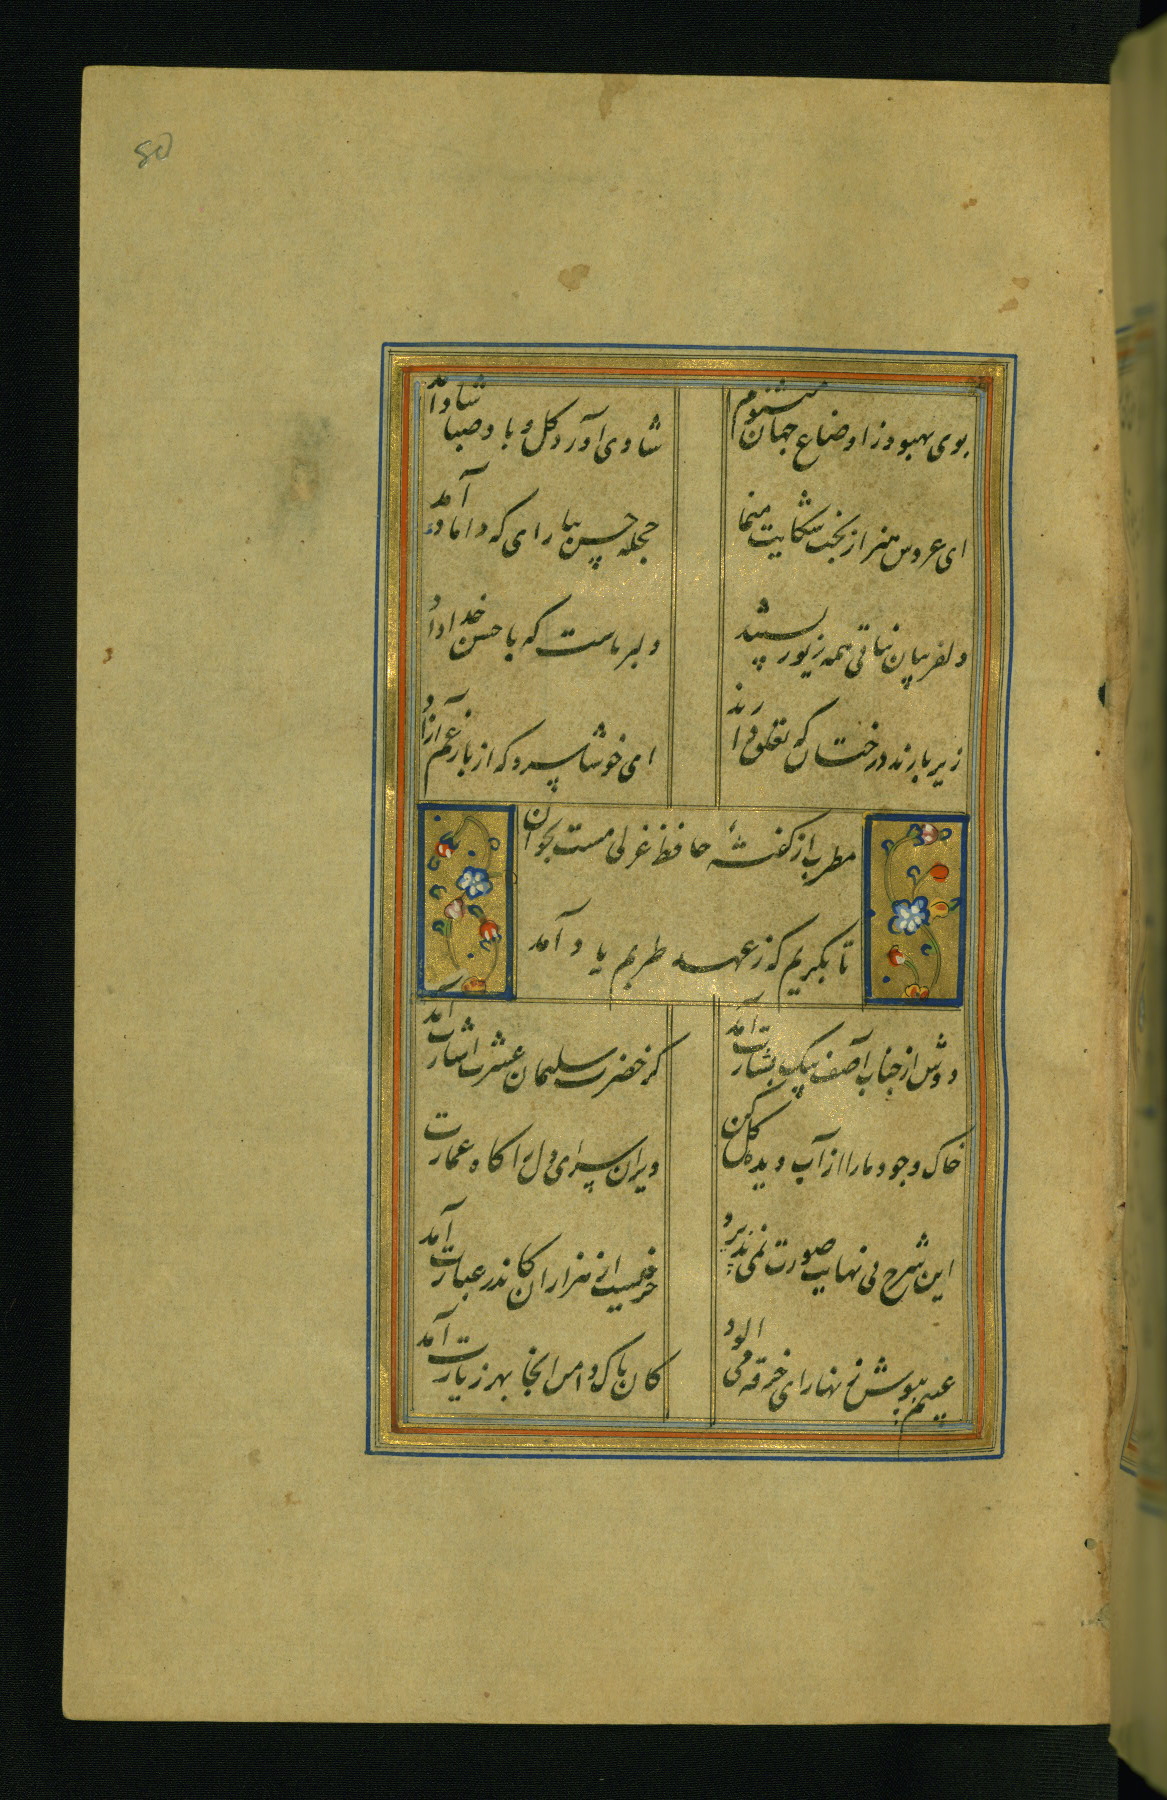 80
بوی بهبود ز اوضاع جهان میشنوم
شادی آورد گل و باد صبا شاد آمد
ای عروس هنر از بخت شکایت منما
حجله حسن بیارای که داماد آمد
دلفریبان نباتی همه زیور بستند
دلبر ماست که با حسن خداداد
زیر بارند درختان که تعلق دارند
ای خوشا سرو که از بار غم آزاد
مطرب از گفتهٔ حافظ غزلی مست بخوان
تا بگریم که ز عهد طربم یاد آمد
دوش از جناب آصف پیک بشارت آمد
کز حضرت سلیمان عشرت اشارت آمد
خاک وجود ما را از آب دیده گل کن
ویران سرای دل را گاه عمارت
این شرح بی نهایت صورت نمی پذیرد
حرفیست از هزاران کاندر عبارت آمد
عیبم بپوش زنهار ای خرقه می آلود
کان پاک دامن اینجا بهر زیارت آمد